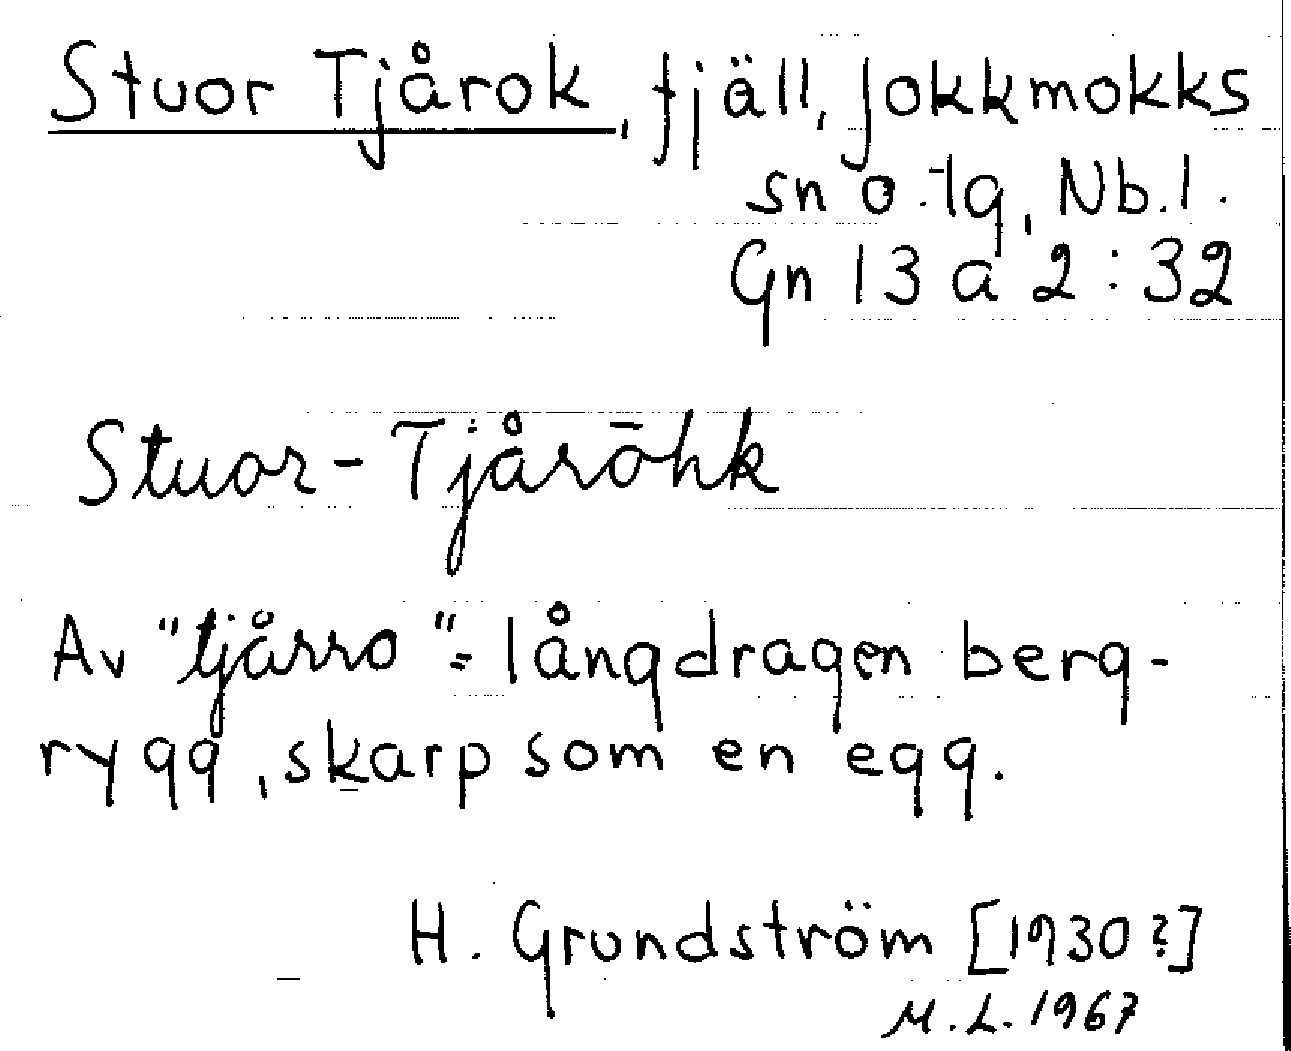 Stuor Tjårok, fjäll, Jokkmokks
sn o. tg, Nb.l.
Gn 13 a 2:32
Stuor-Tjårōhk
Av "tjårro" = långdragen berg-
rygg, skarp som en egg.
H. Grundström [1930?]
M.L. 1967